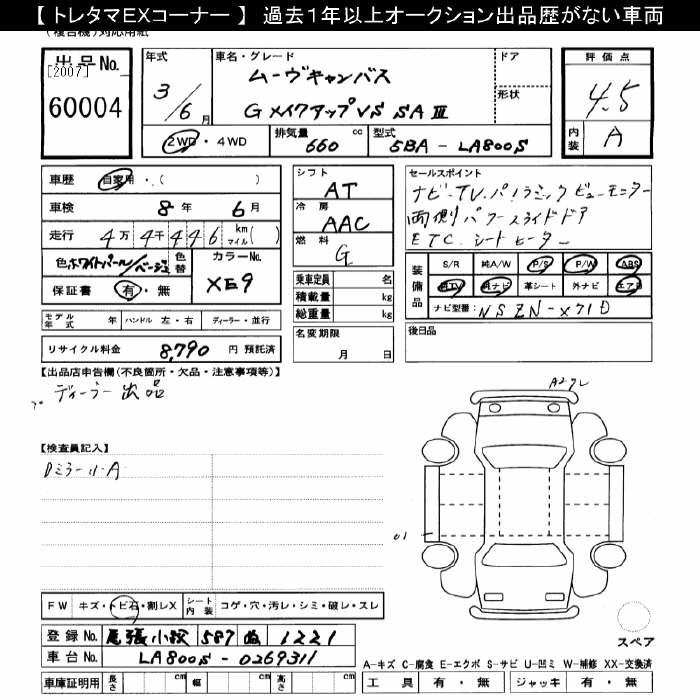 【 トレタマEXコーナー 】 過去1年以上オークション出品歴がない車両
(複合機)対応用紙
出品No.
[2007]
60004
年式
3/6月
車名・グレード
ムーヴキャンバス
GメイクアップVS SAⅢ
ドア
形状
評価点
4.5
内装
A
2WD・4WD
排気量
660 cc
型式
5BA - LA800S
車歴
自家用・( )
車検
8年 6月
走行
4万 4千 4 4 6 km マイル( )
色 ホワイトパール/ベージュ
色替
カラーNo.
XE9
保証書 有・無
シフト
AT
冷房
AAC
燃料
G
乗車定員 名
積載量 kg
総重量 kg
セールスポイント
ナビ・TV.パノラミックビューモニター
両側パワースライドドア
ETC.シートヒーター
装備品
S/R 純A/W P/S P/W ABS
純TV 純ナビ 革シート 外ナビ エアB
ナビ型番: NSZN-X71D
モデル年式 年 ハンドル 左・右 ディーラー・並行
リサイクル料金 8,790 円 預託済
名変期限
月 日
後日品
【出品店申告欄(不良箇所・欠品・注意事項等)】
ディーラー出品
A2クレ
【検査員記入】
Dミラー小A
01
FW キズ・トビ石・割レX
シート内装 コゲ・穴・汚レ・シミ・破レ・スレ
登録No. 尾張小牧 587 ぬ 1221
車台No. LA800S - 0269311
車庫証明用 長さ cm 幅 cm 高さ cm
スペア
A-キズ C-腐食 E-エクボ S-サビ U-凹ミ W-補修 XX-交換済
工具 有・無 ジャッキ 有・無